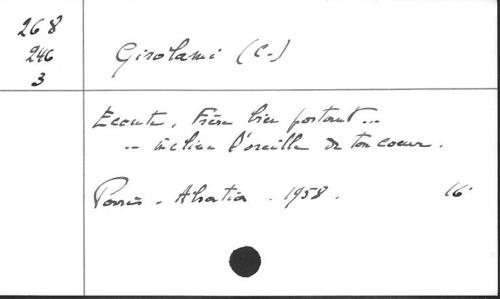 268
246
3
Girolami (C.)
Ecoute, Frère bien portant...
... incline l'oreille de ton coeur.
Paris - Alsatia . 1958 . 16°